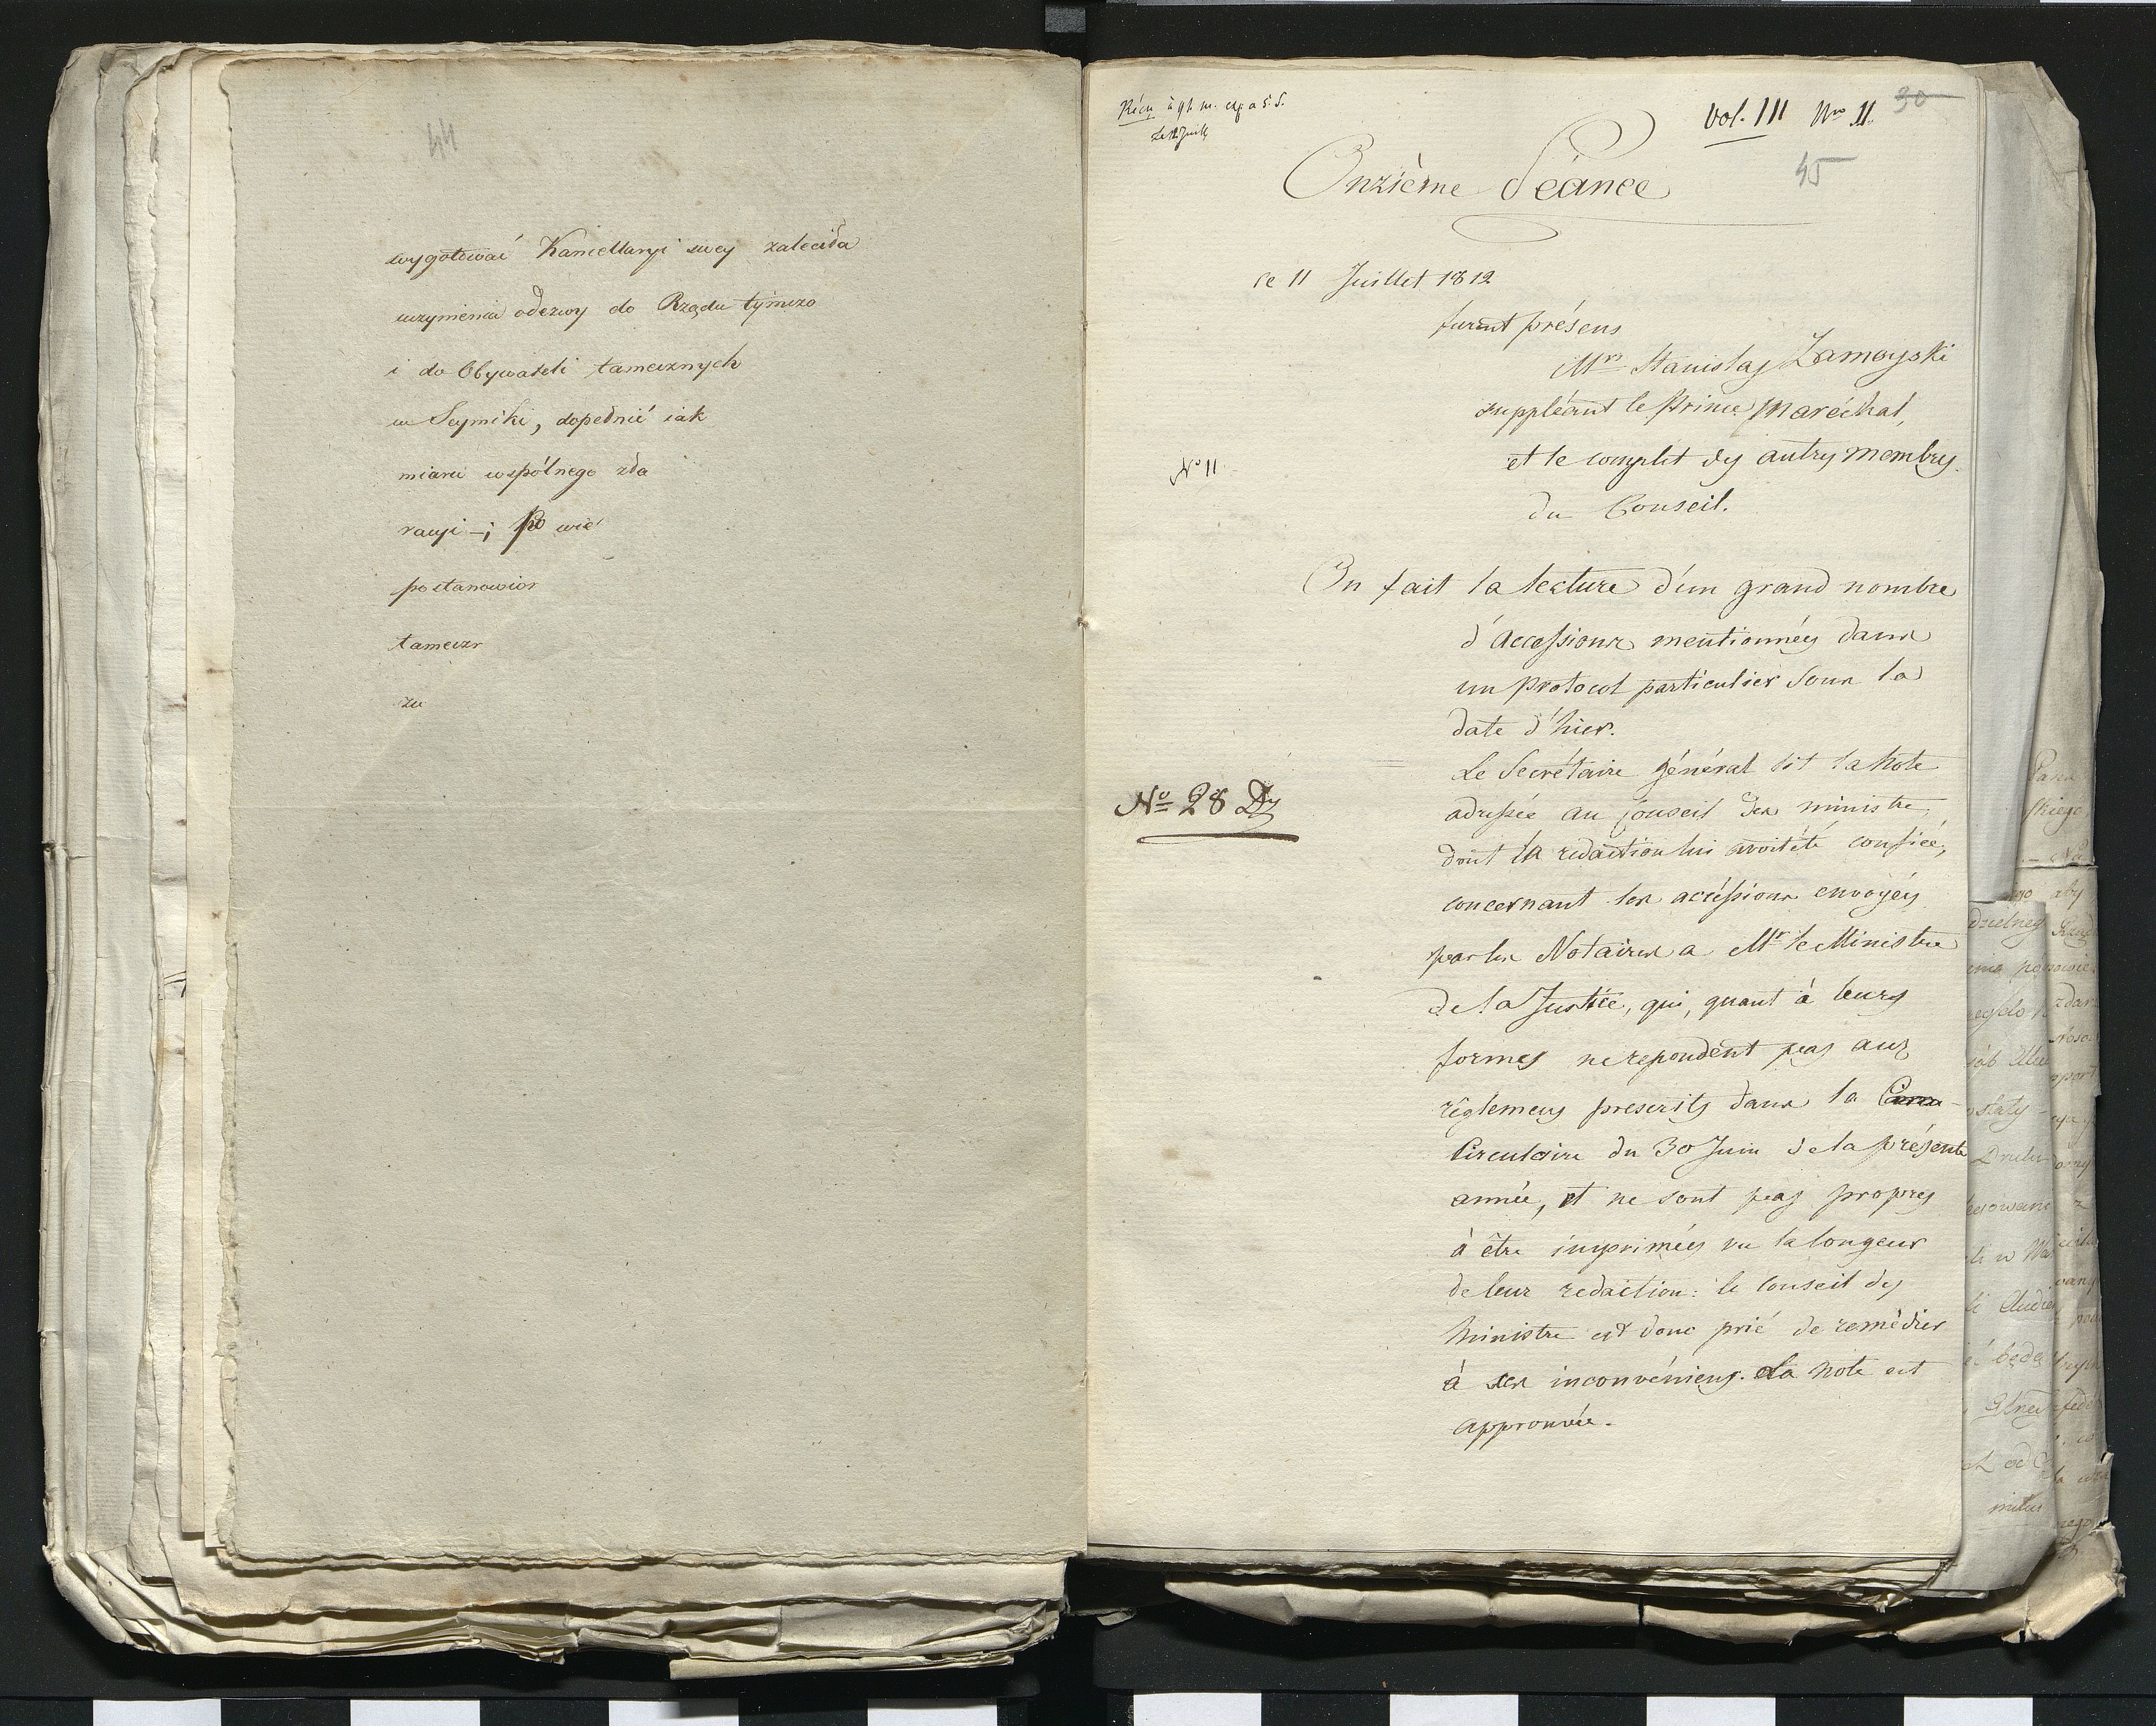 44
wygotować Kancellaryi swey zaleciła
uczynienia odezwy do Rządu tymczo
i do Obywateli tamecznych
w Seymiki, dopełnić iak
miarę wspólnego zda
racyi –; Po
postanowior
tameczn
za
Vol. III Nro 11. 30
45
Onzième Séance
ce 11 Juillet 1812
furent présens
Mrs Stanislas Zamoyski
suppléant le Prince Maréchal,
et le complet des autres membres
No 11
du Conseil.
On fait la lecture d'un grand nombre
d'accessions mentionnées dans
un protocol particulier sous la
date d'hier.
Le Secrétaire général lit la Note
No 28 Dz
adressée au Conseil des ministre
dont la redaction lui avoit été confiée,
concernant les accéssions envoyées
par les Notaires a Mr le Ministre
de la Justice, qui, quant à leurs
formes ne repondent pas aux
réglemens prescrits dans la
Circulaire du 30 Juin de la présente
année, et ne sont pas propres
à être imprimées vu la longeur
de leur redaction: le Conseil des
Ministre est donc prié de remèdier
à ces inconvéniens. La Note est
approuvée.